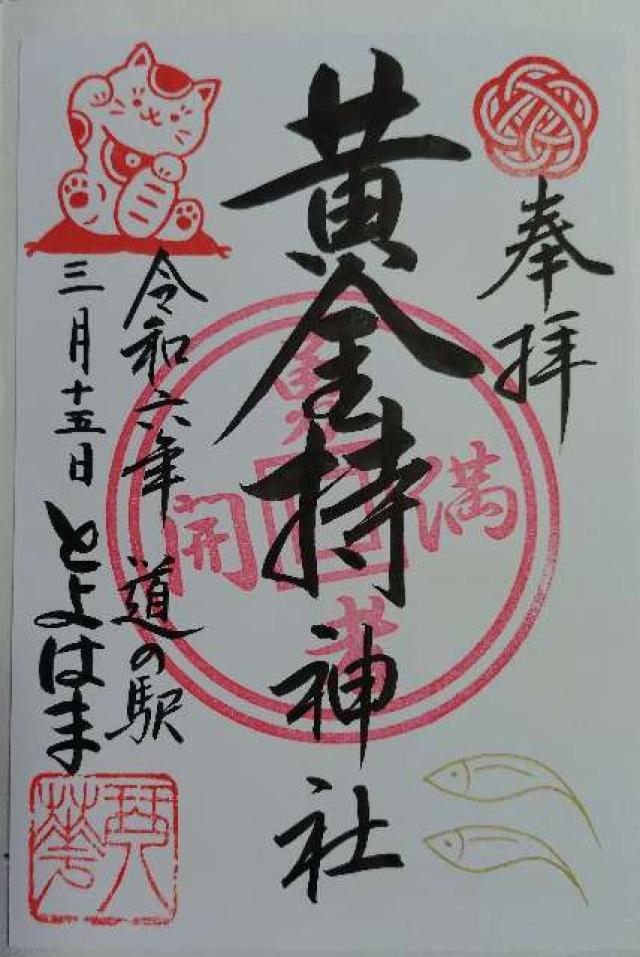 奉拝
黄金持神社
令和六年 道の駅
三月十五日 とよはま
満
開